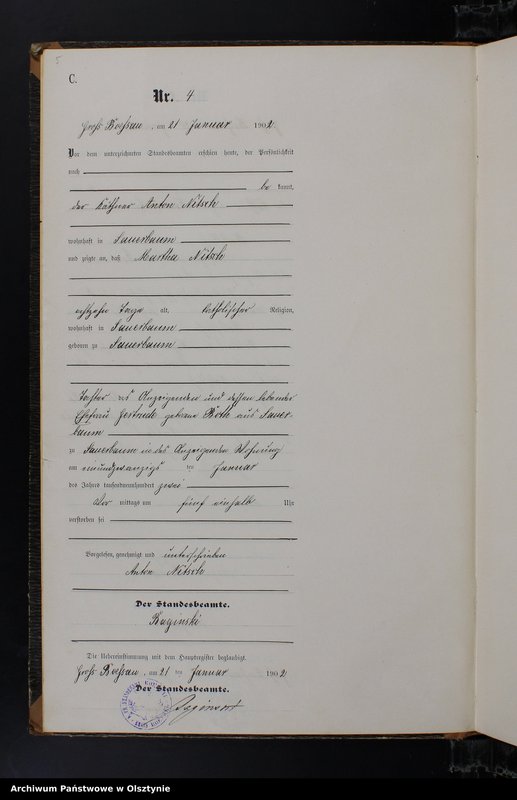 C.
Nr. 4
Groß Bößau, am 21 Januar 1902.
Vor dem unterzeichneten Standesbeamten erschien heute, der Persönlichkeit
nach
be kannt,
der Käthner Anton Nitsch
wohnhaft in Sauerbaum
und zeigte an, daß Martha Nitsch
achtzehn Tage alt, katholischer Religion,
wohnhaft in Sauerbaum
geboren zu Sauerbaum
Tochter des Anzeigenden und dessen lebender
Ehefrau Gertrude geborene aus Sauer-
baum
zu Sauerbaum in des Anzeigenden Wohnung
am einundzwanzigs ten Januar
des Jahres tausendneunhundert zwei
Vor mittags um fünf einhalb Uhr
verstorben sei
Vorgelesen, genehmigt und unterschrieben
Anton Nitsch
Der Standesbeamte.
Die Uebereinstimmung mit dem Hauptregister beglaubigt.
Groß Bößau, am 21 ten Januar 1902
Der Standesbeamte.
Archiwum Państwowe w Olsztynie